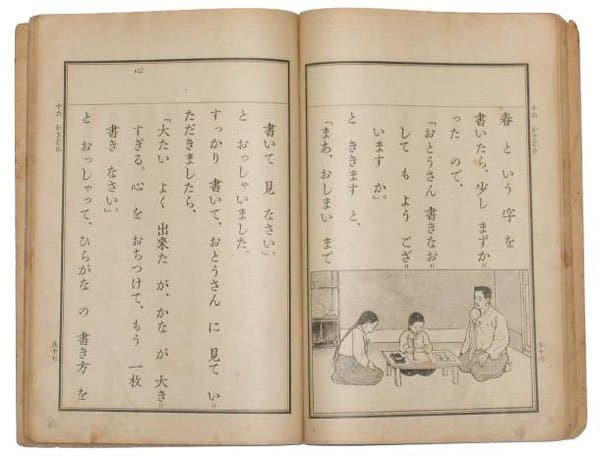 春 という 字を
書いたら、少し まずか゠
った ので、
「おとうさん 書きなお゠
して も よう ござ゠
います か。」
と ききます と、
「まあ、おしまい まで
心
書いて 見 なさい。」
と おっしゃいました。
すっかり 書いて、おとうさん に 見て い゠
ただきましたら、
「大たい よく 出来た が、かな が 大き゠
すぎる。心 を おちつけて、もう 一枚
書き なさい。」
と おっしゃって、ひらがな の 書き方 を